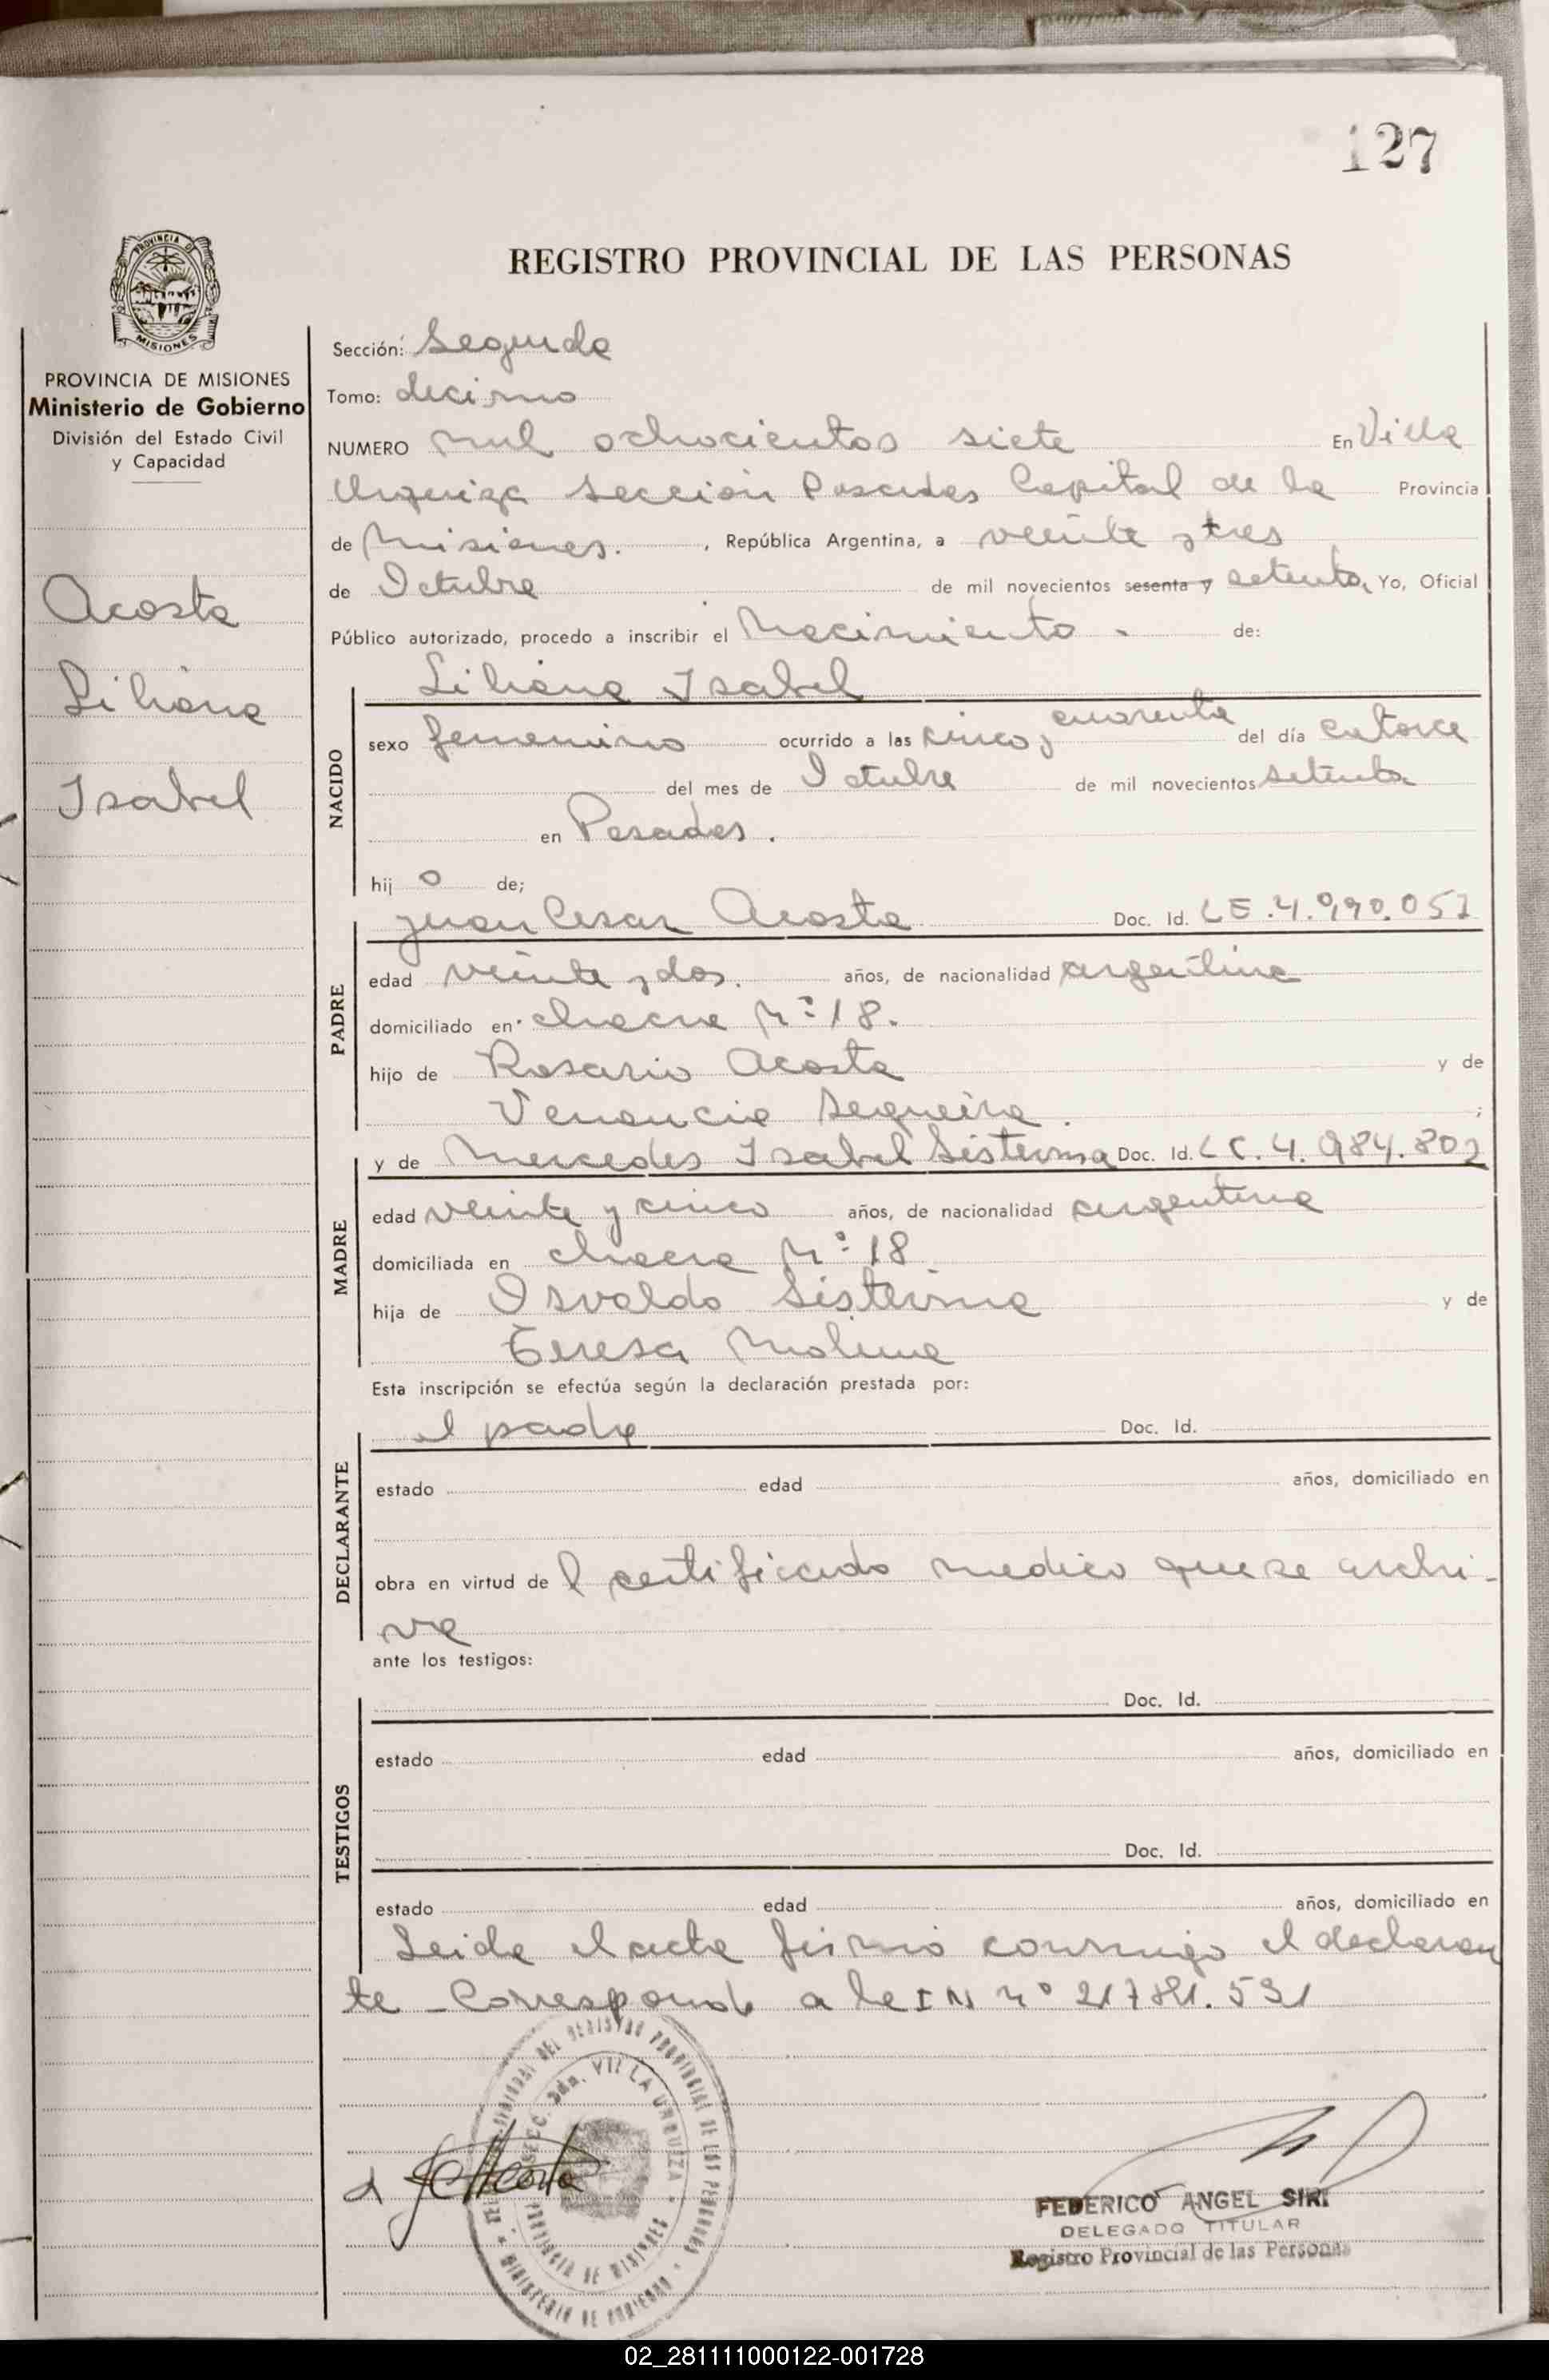 127
REGISTRO PROVINCIAL DE LAS PERSONAS
PROVINCIA DE MISIONES
Ministerio de Gobierno
División del Estado Civil
y Capacidad
Acosta
Liliana
Isabel
Sección: Segunda
Tomo: decimo
NUMERO mil ochocientos siete En Villa
Urquiza Sección Posadas Capital de la Provincia
de Misiones. , República Argentina, a veinte y tres
de Octubre de mil novecientos sesenta y setenta, Yo, Oficial
Público autorizado, procedo a inscribir el Nacimiento - de:
NACIDO
Liliana Isabel
sexo femenino ocurrido a las cinco y cuarenta del día catorce
del mes de Octubre de mil novecientos setenta
en Posadas.
hij o de;
PADRE
Juan Cesar Acosta Doc. Id. LE.4.990.051
edad veinte y dos. años, de nacionalidad argentina
domiciliado en chacra Nº 18.
hijo de Rosario Acosta y de
Venancia Sequeira. ;
MADRE
y de Mercedes Isabel Sisterna Doc. Id. LC.4.984.802
edad veinte y cinco años, de nacionalidad argentina
domiciliada en chacra Nº 18
hija de Osvaldo Sisterna y de
Teresa Molina
Esta inscripción se efectúa según la declaración prestada por:
DECLARANTE
el padre Doc. Id.
estado edad años, domiciliado en
obra en virtud de l certificado medico que se archi-
va
ante los testigos:
TESTIGOS
Doc. Id.
estado edad años, domiciliado en
Doc. Id.
estado edad años, domiciliado en
Leida el acta firmó conmigo el declaran
te - Corresponde a la IN nº 21781.531
SECC. 2da. VILLA URQUIZA
PROVINCIA DE MISIONES
MINISTERIO DE GOBIERNO
FEDERICO ANGEL SIRI
DELEGADO TITULAR
Registro Provincial de las Personas
02_281111000122-001728